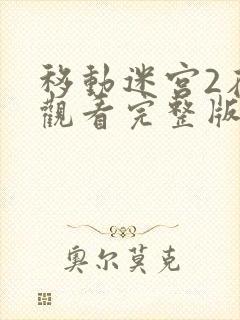 移動迷宮2
觀看完整版
奧尔莫克